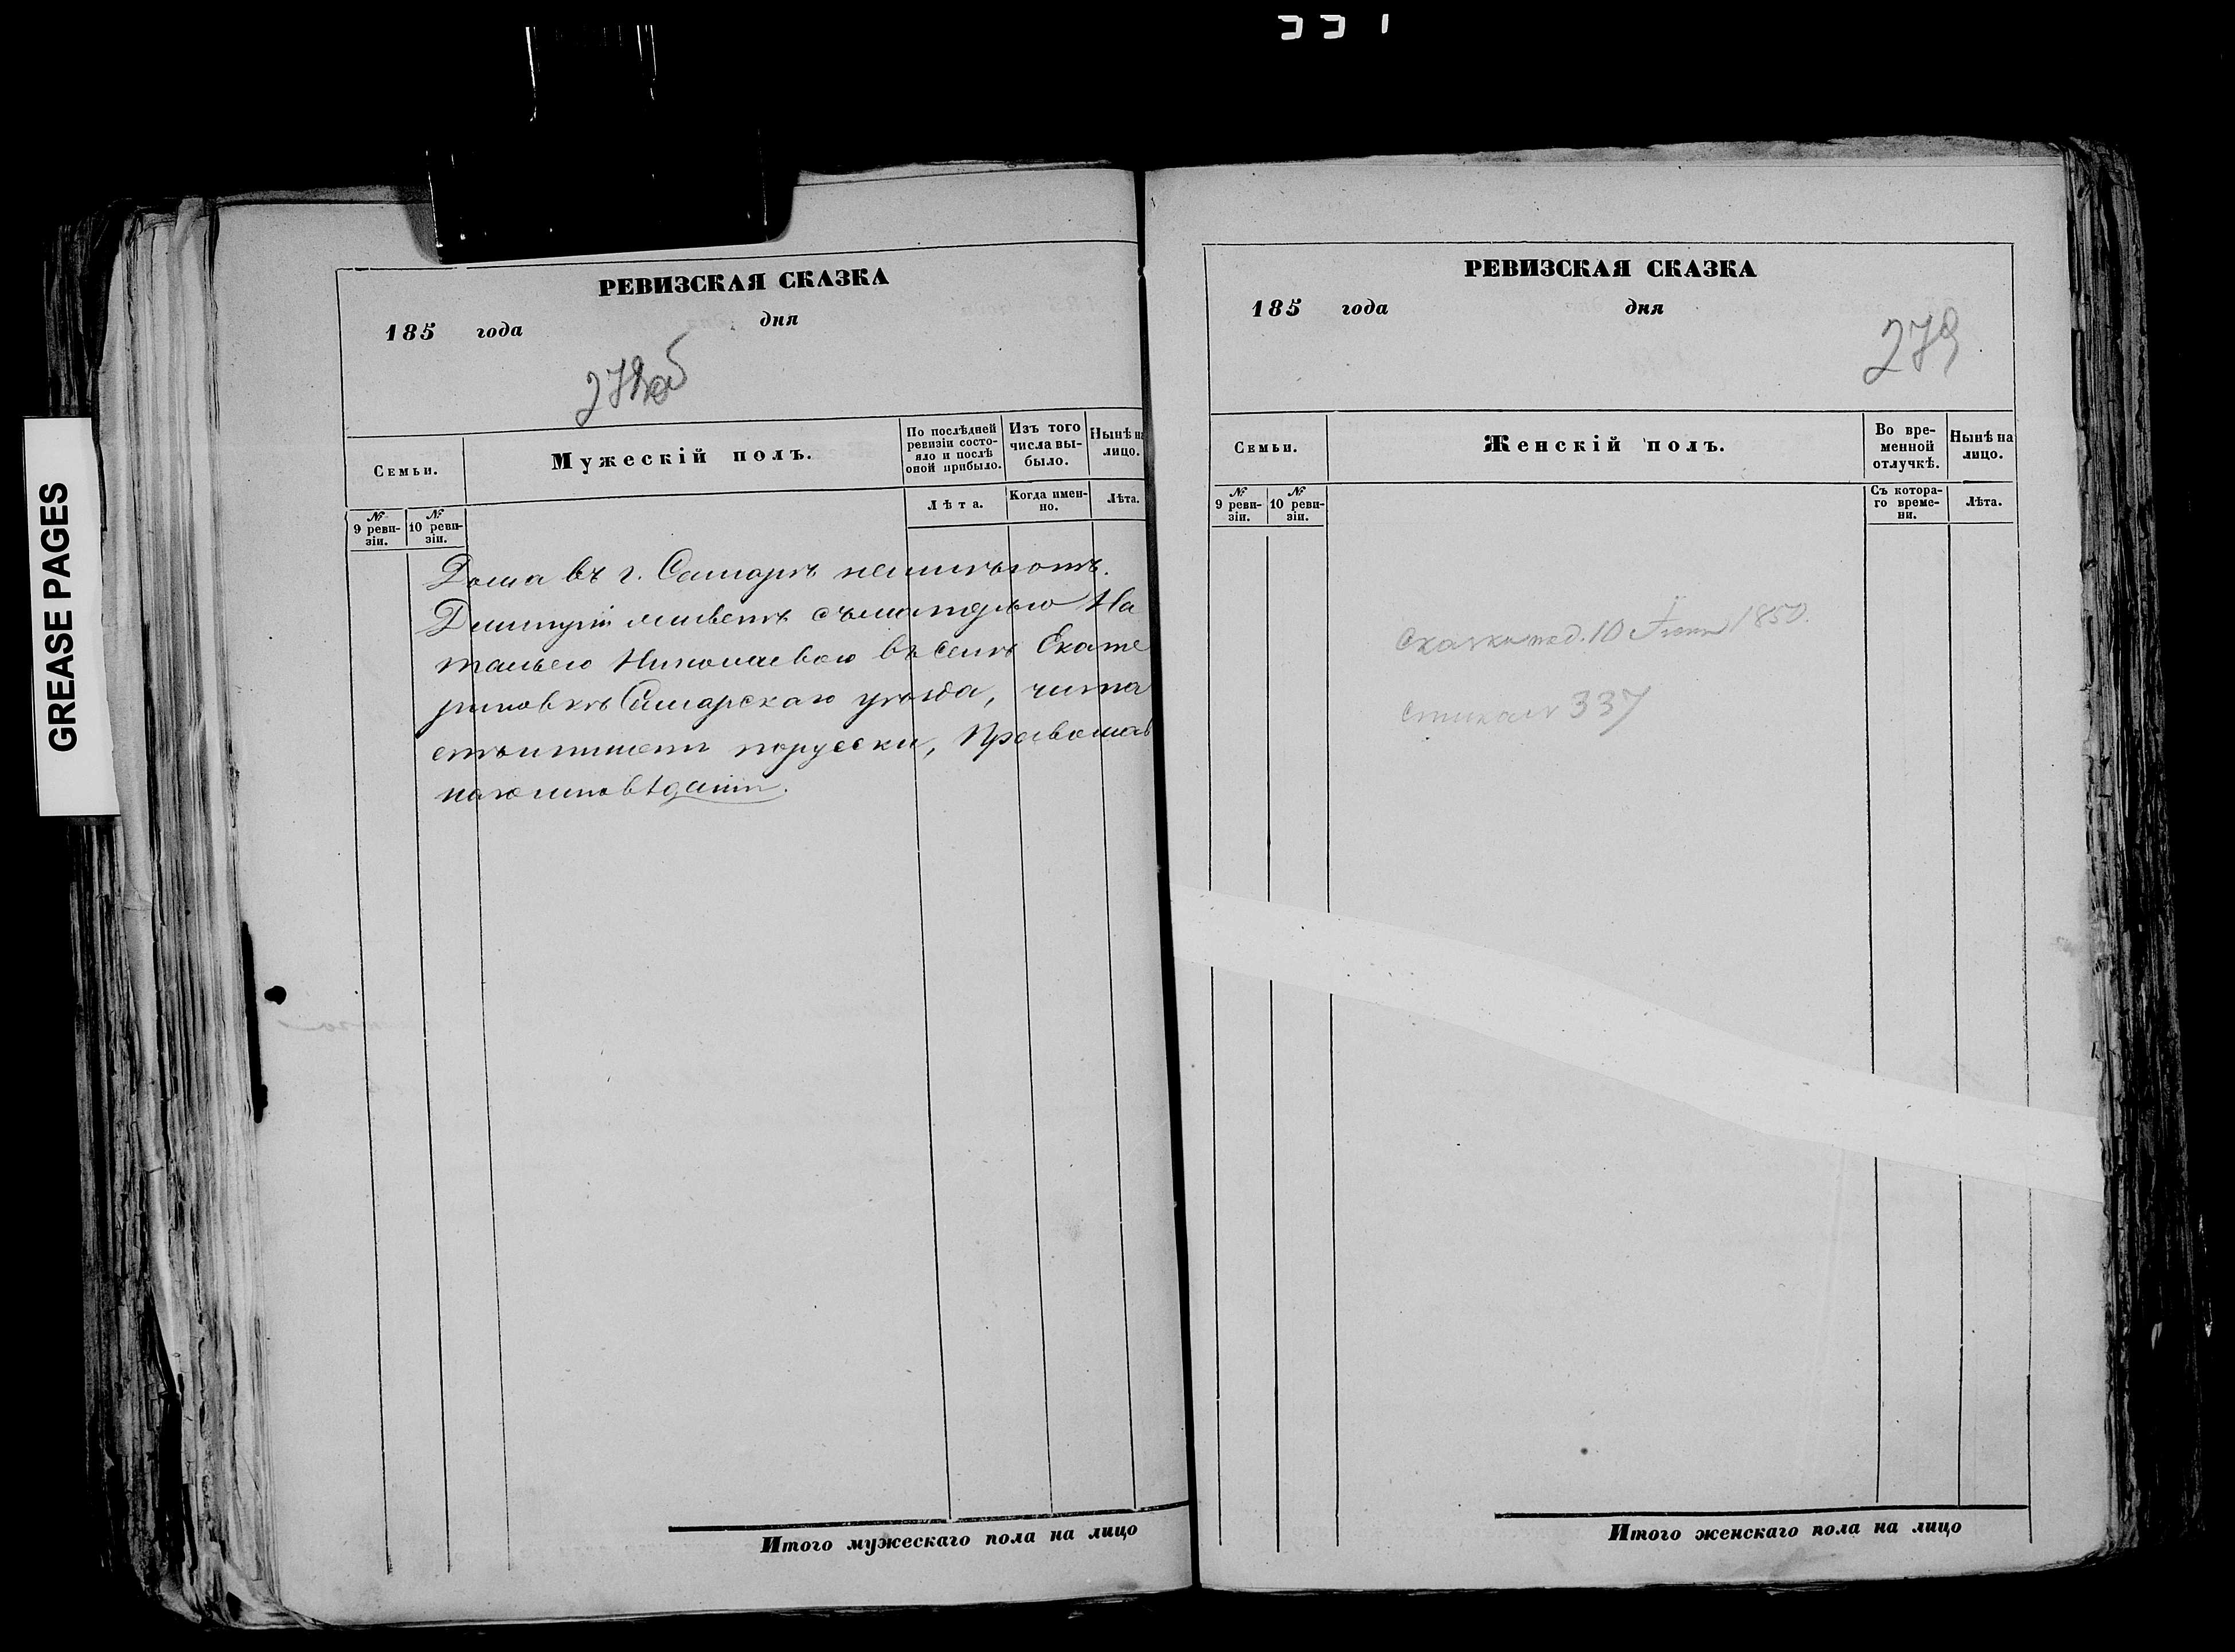 337
GREASE PAGES
РЕВИЗСКАЯ СКАЗКА
185 года дня
278об
Семьи.
Мужескій полъ.
По послѣдней ревизіи состо-
яло и послѣ оной прибыло.
Изъ того числа вы-
было.
Нынѣ на лицо.
№ 9 реви-
зіи.
№ 10 реви-
зіи.
Лѣта.
Когда имен-
но.
Лѣта.
Дома въ г. Самарѣ неимѣютъ.
Димитрій живетъ съматерью На
тальею Николаевою въ селѣ Екате
риновкѣ Самарскаго уѣзда, чита
етъ и пишетъ порусски, Православ
наго исповѣданія.
Итого мужескаго пола на лицо
РЕВИЗСКАЯ СКАЗКА
185 года дня
279
Семьи.
Женскій полъ.
Во вре-
менной
отлучкѣ.
Нынѣ на
лицо.
№ 9 реви-
зіи.
№ 10 реви-
зіи.
Съ котора-
го време-
ни.
Лѣта.
Сказка под. 10 Іюня 1850.
337
Итого женскаго пола на лицо